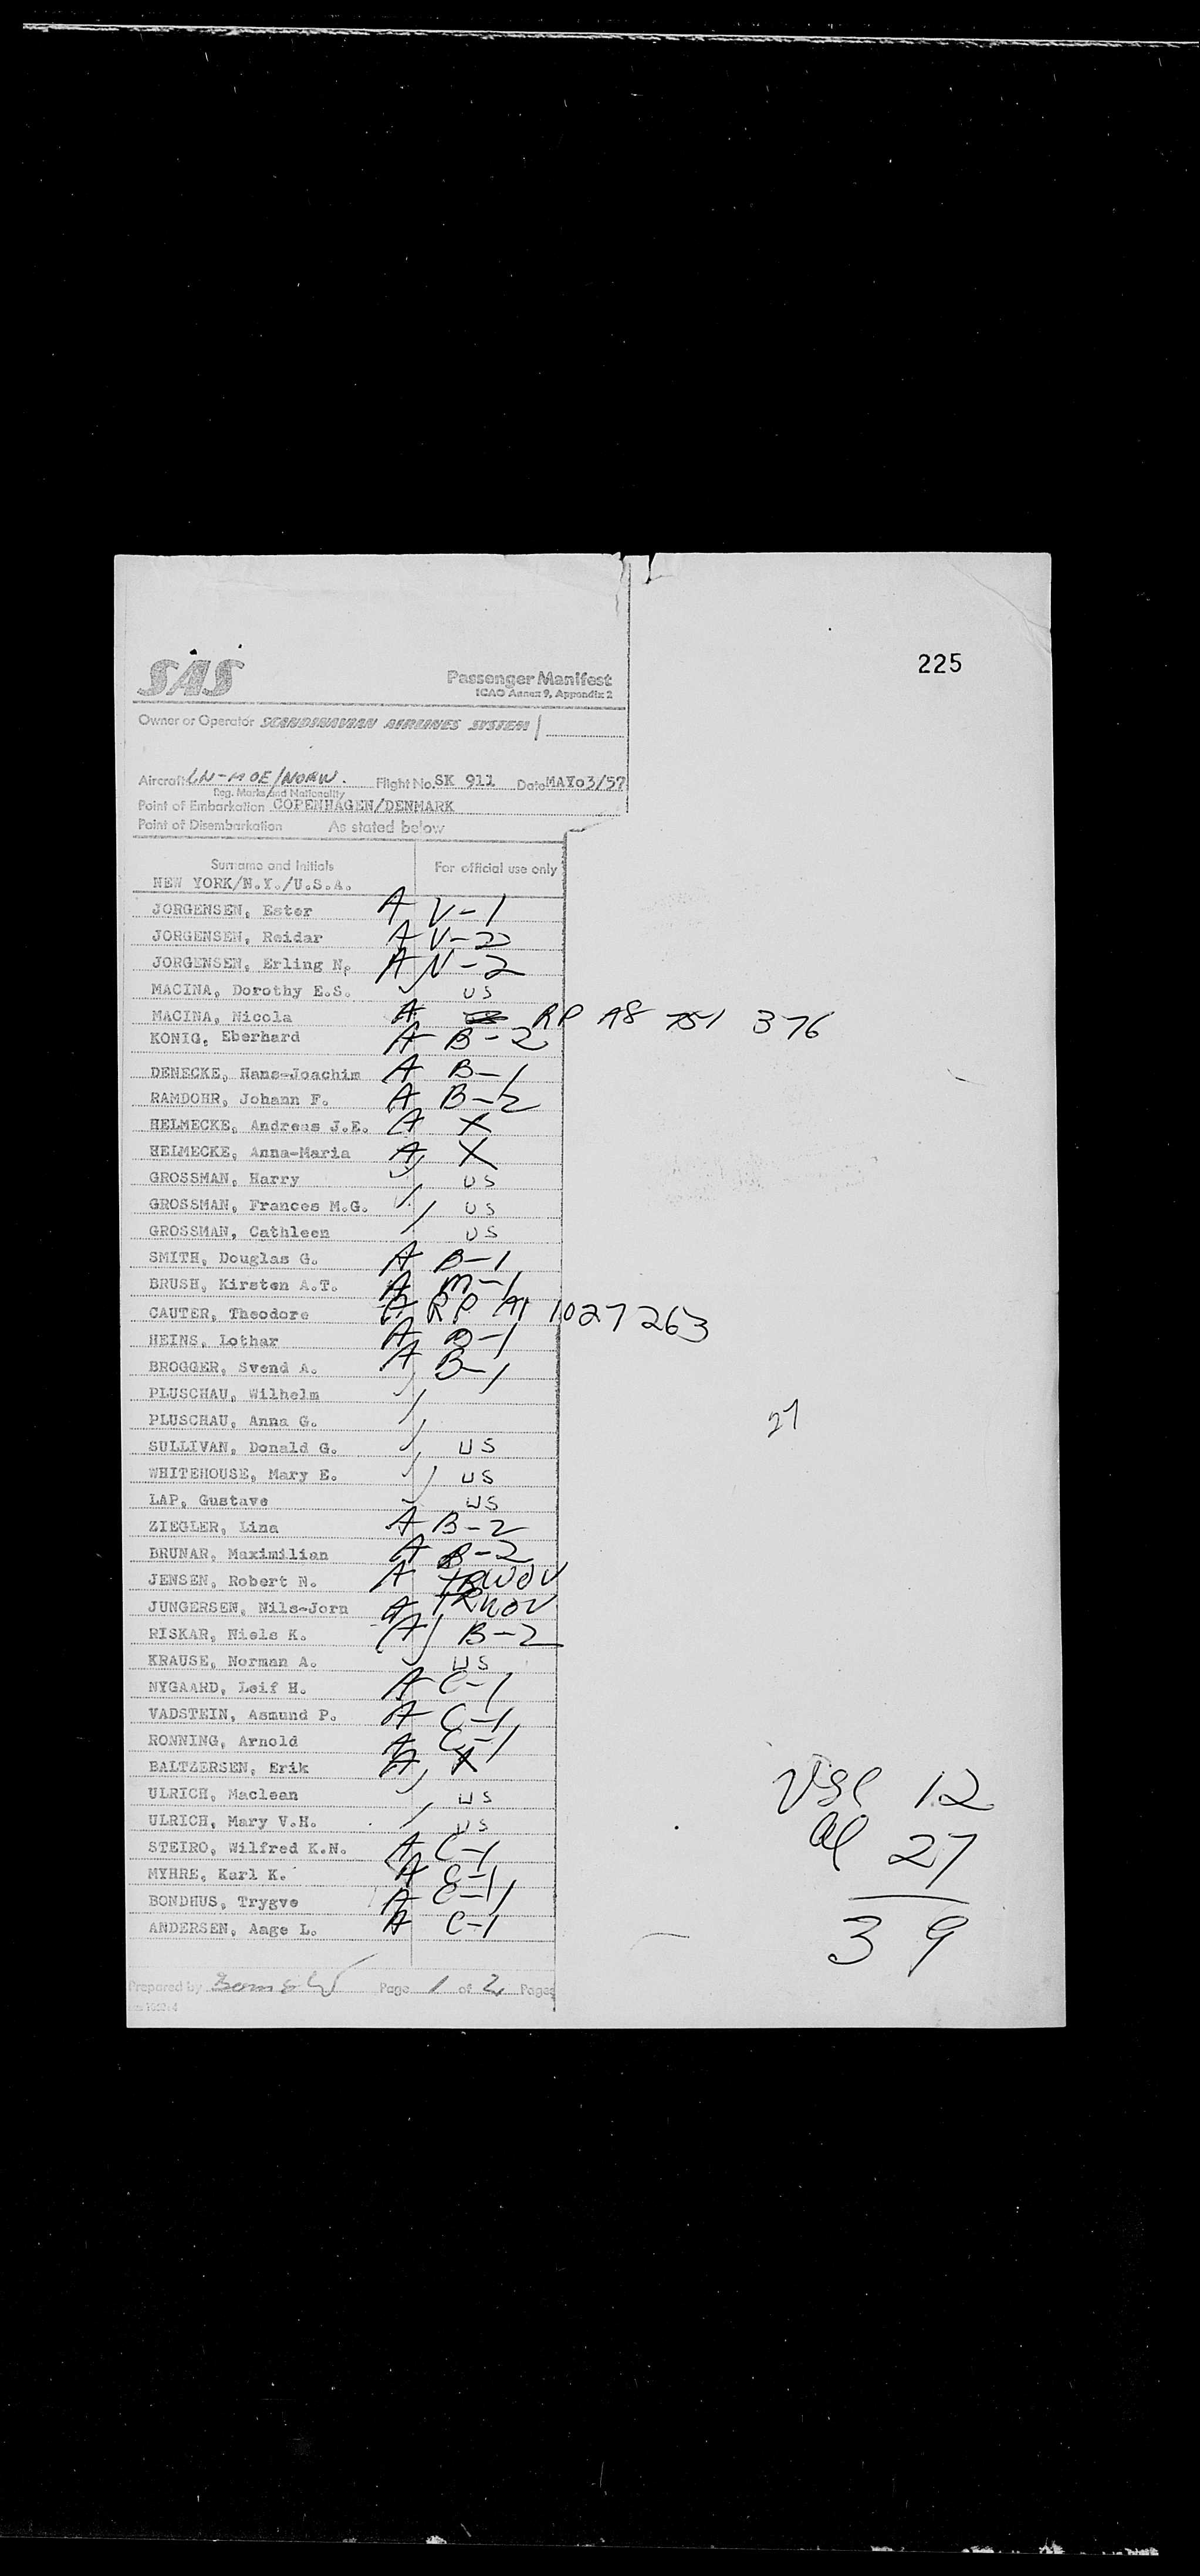 225
SAS
Passenger Manifest
ICAO Annex 9, Appendix 2
Owner or Operator SCANDINAVIAN AIRLINES SYSTEM
Aircraft LN-MOE/NORW. Flight No. SK 911 Date MAY03/57
Reg. Marks and Nationality
Point of Embarkation COPENHAGEN/DENMARK
Point of Disembarkation As stated below
Surname and Initials For official use only
NEW YORK/N.Y./U.S.A.
JORGENSEN, Ester A V-1
JORGENSEN, Reidar A V-2
JORGENSEN, Erling N. A V-2
MACINA, Dorothy E.S. US
MACINA, Nicola A RP A8 751 376
KONIG, Eberhard A B-2
DENECKE, Hans-Joachim A B-1
RAMDOHR, Johann F. A B-2
HELMECKE, Andreas J.E. A X
HELMECKE, Anna-Maria A X
GROSSMAN, Harry US
GROSSMAN, Frances M.G. US
GROSSMAN, Cathleen US
SMITH, Douglas G. A B-1
BRUSH, Kirsten A.T. A M-1
CAUTER, Theodore A RP A1 1027263
HEINS, Lothar A B-1
BROGGER, Svend A. A B-1
PLUSCHAU, Wilhelm
PLUSCHAU, Anna G.
27
SULLIVAN, Donald G. US
WHITEHOUSE, Mary E. US
LAP, Gustave US
ZIEGLER, Lina A B-2
BRUNAR, Maximilian A B-2
JENSEN, Robert N. A TRWOV
JUNGERSEN, Nils-Jorn A TRWOV
RISKAR, Niels K. A B-2
KRAUSE, Norman A. US
NYGAARD, Leif H. A C-1
VADSTEIN, Asmund P. A C-1
RONNING, Arnold A C-1
BALTZERSEN, Erik A X
ULRICH, Maclean US
ULRICH, Mary V.H. US
STEIRO, Wilfred K.N. A C-1
MYHRE, Karl K. A C-1
BONDHUS, Trygve A C-1
ANDERSEN, Aage L. A C-1
12
al 27
39
Prepared by Page 1 of 2 Pages